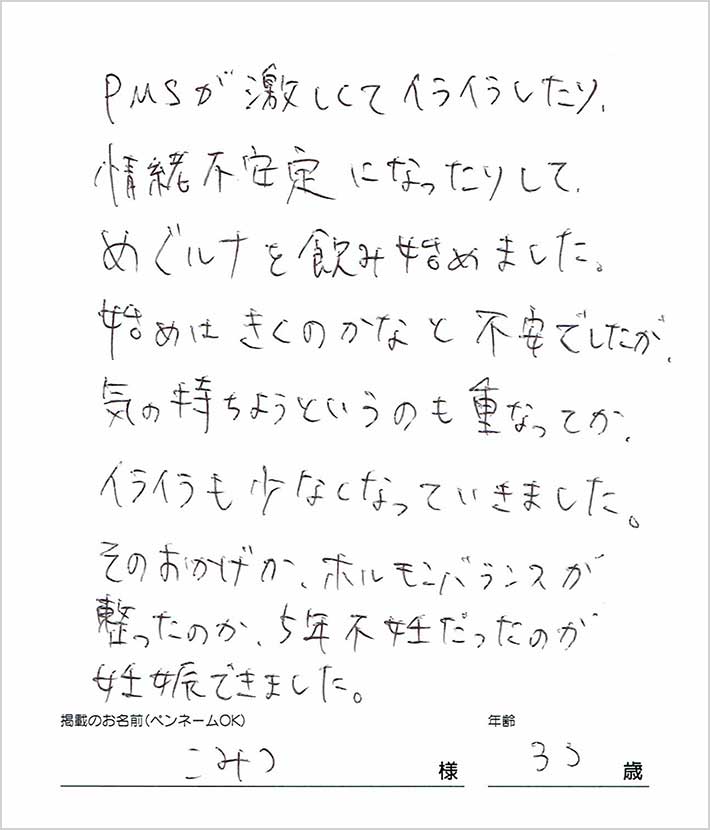 PMSが激しくてイライラしたり、
情緒不安定になったりして、
めぐルナを飲み始めました。
始めはきくのかなと不安でしたが、
気の持ちようというのも重なってか、
イライラも少なくなっていきました。
そのおかげか、ホルモンバランスが
整ったのか、5年不妊だったのが
妊娠できました。
掲載のお名前(ペンネームOK) 年齢
こみつ 様 33 歳